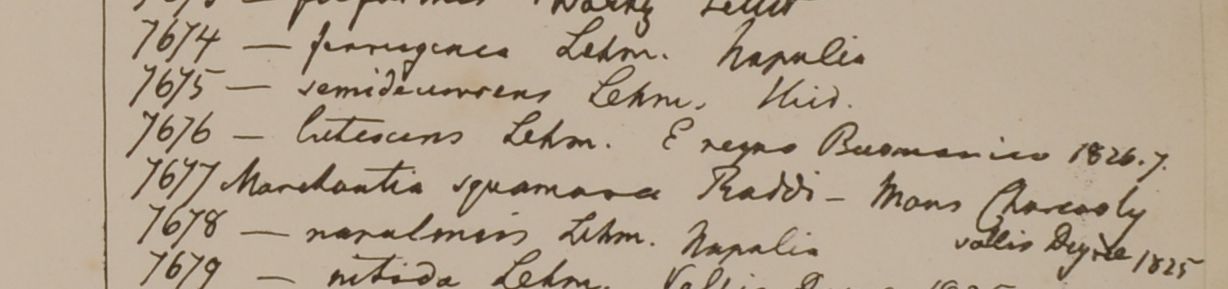 7674 — ferruginea Lehm. Napalia
7675 — semidecurrens Lehm. Ibid.
7676 — lutescens Lehm. E regno Burmanico 1826.7.
7677 Marchantia squamosa Raddi – Mons Chureooly
vallis Deyrae 1825
7678 — nepalensis Lehm. Napalia
7679 — nitida Lehm. Vallis